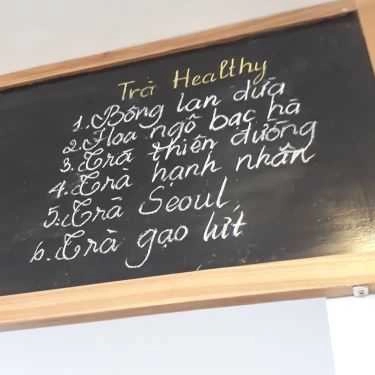 Trà Healthy
1. Bông lan dừa
2. Hoa ngõ bạc hà
3. Trà thiên đường
4. Trà hạnh nhân
5. Trà Seoul
6. Trà gạo lứt